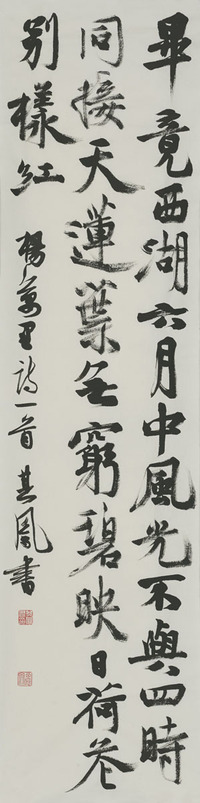 畢竟西湖六月中風光不與四時
同接天蓮葉無窮碧映日荷花
別樣紅
楊萬里詩一首其鳳書